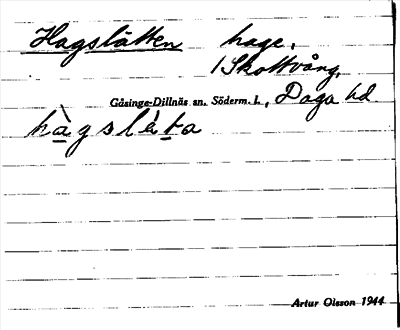 Hagslätten hage.
/Skottvång.
Gåsinge-Dillnäs sn. Söderm. l., Daga hd
hàgslèta
Artur Olsson 1944